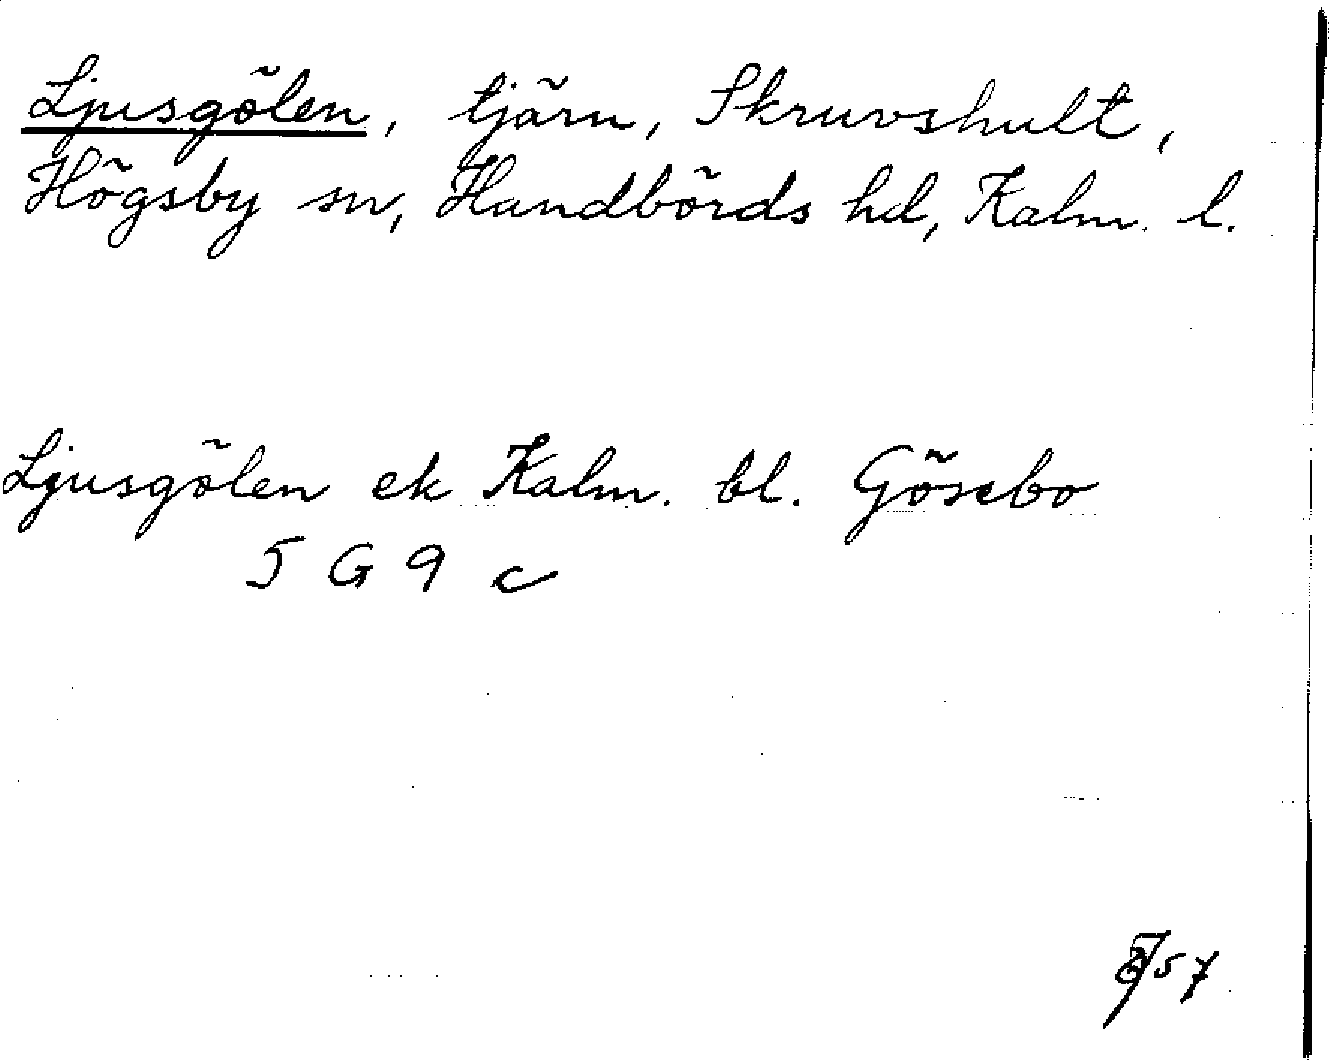 Ljusgölen, tjärn, Skruvshult,
Högsby sn, Handbörds hd, Kalm. l.
Ljusgölen ek Kalm. bl. Gösebo
5 G 9 c
57